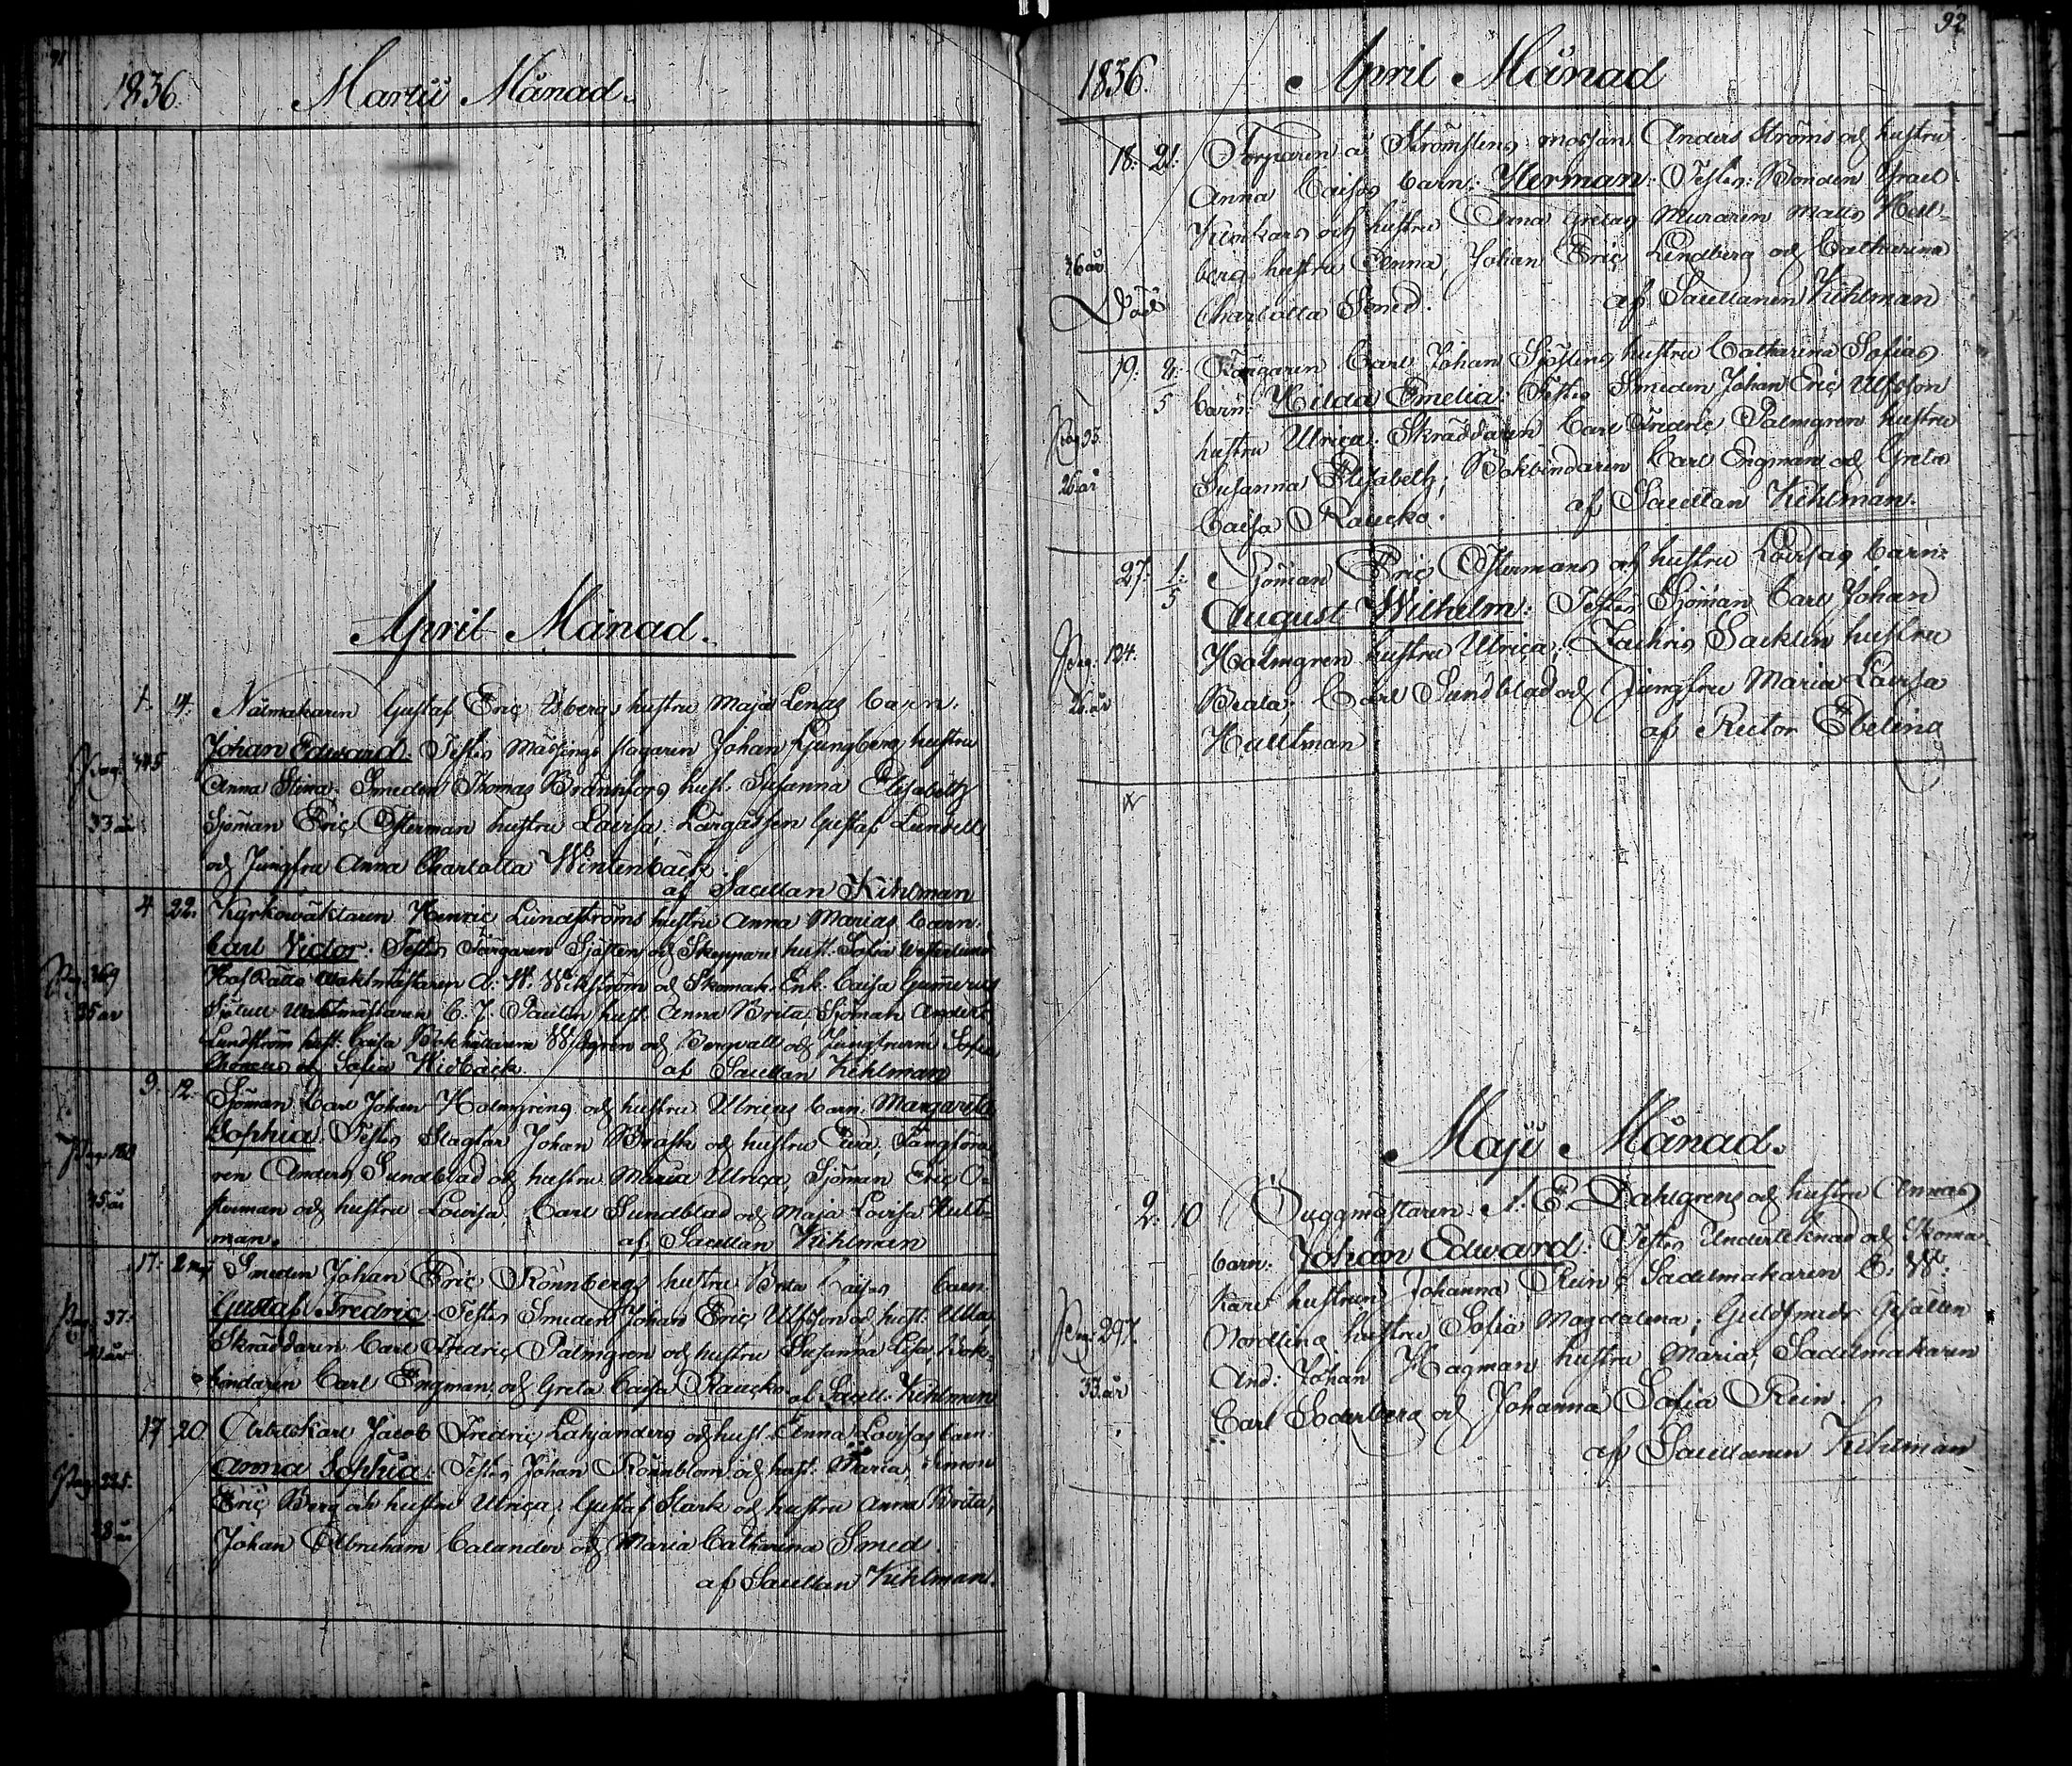 91
1836. Martii Månad.
April Månad.
1. 14. Nålmakaren Gustaf Eric Åbergs hustru Maja Lenas barn.
Johan Edward. Testes Mässings slagaren Johan Ljungberg hustru
Pag. 445
Anna Stina. Smeden Thomas Brännfors hust. Susanna Elisabeth
33 år Sjöman Eric Österman hustru Lovisa. Färgaessen Gustaf Lundell
och Jungfru Anna Charlotta Wintenbäck.
af Sacellan Kihlman
4 22. Kyrkowäktaren Henric Lundströms hustru Anna Marias barn.
Carl Victor. Testes Färgaren Sjösten och Skeppare hust. Sofia Westerlund
Pag. 369 HofRätts Waktmästaren A. W. Wikström och Skomak. Enk. Caisa Gumerus
35 år Siötull Waktmästaren C. J. Paulin hust. Anna Brita. Sjöman Anders
Lundström hust. Caisa Bokhållarene Widgren och Bergvall och Jungfrurne Sofia
Choræus och Sofia Hidbäck. af Sacellan Kihlman
9. 12. Sjöman Carl Johan Holmgrens och hustru Ulricas barn. Margareta
Sophia. Testes Slagtar Johan Brask och hustru Ewa, Fångföra-
ren Anders Sundblad och hustru Maria Ulrica, Sjöman Eric Ö-
45 år sterman och hustru Lovisa. Carl Sundblad och Maja Lovisa Hult-
man. af Sacellan Kihlman
17. 2 maj Smeden Johan Eric Rönnbergs hustru Brita Caisas barn
Pag. 37. Gustaf Fredric. Testes Smeden Johan Eric Ulfsson och hust. Ulla,
Skräddaren Carl Fredric Palmgren och hustru Susanna Lisa, Bok-
bindaren Carl Engman, och Greta Caisa Raucko af Sacell. Kihlman
17 20 Arbetskarl Jacob Fredric Lahjanders och hust. Anna Lovisas barn
Anna Sophia. Testes Johan Rönnblom och hust. Maria, Simon
Pag. 225. Eric Berg och hustru Ulrica, Gustaf Stark och hustru Anna Brita,
28 år Johan Abraham Calander och Maria Catharina Smed.
af Sacellan Kihlman.
92
1836. April Månad
18. 21. Torparen å Strömstens mossan Anders Ströms och hustru
Anna Caisas barn. Herman. Testes: Bonden Israel
och hustru Anna Gretas Muraren Matts Hell-
36 år berg hustru Anna, Johan Eric Lindberg och Catharina
Död Charlotta Smed. af Sacellanen Kihlman
19. 8/5 Färgaren Carl Johan Sjöstens hustru Catharina Sofias
barn: Hilda Emelia. Testes Smeden Johan Eric Ulfsson
Pag 93. hustru Ulrica. Skräddaren Carl Fredric Palmgren hustru
26 år Susanna Elisabeth; Bokbindaren Carl Engman och Greta
Caisa Raucko. af Sacellan Kihlman.
27. 1/5 Sjöman Eric Östermans och hustru Lovisas barn:
August Wilhelm. Testes Sjöman Carl Johan
Pag. 124. Holmgren hustru Ulrica; Zachris Sacklin hustru
26 år Beata; Carl Sundblad och Jungfru Maria Lovisa
Hultman af Rector Ebeling
Maji Månad.
2. 10 Byggmästaren A. E. Dahlgrens och hustru Annas
barn. Johan Edward. Testes Undertecknad och Skoma-
kare hustrun Johanna Rein; Sadelmakaren C. W.
Pag. 297. Nordling hustru Sofia Magdalena; Guldsmeds Gesällen
33 år And: Johan Hagman hustru Maria, Sadelmakaren
Carl Söderberg och Johanna Sofia Rein.
af Sacellanen Kihlman